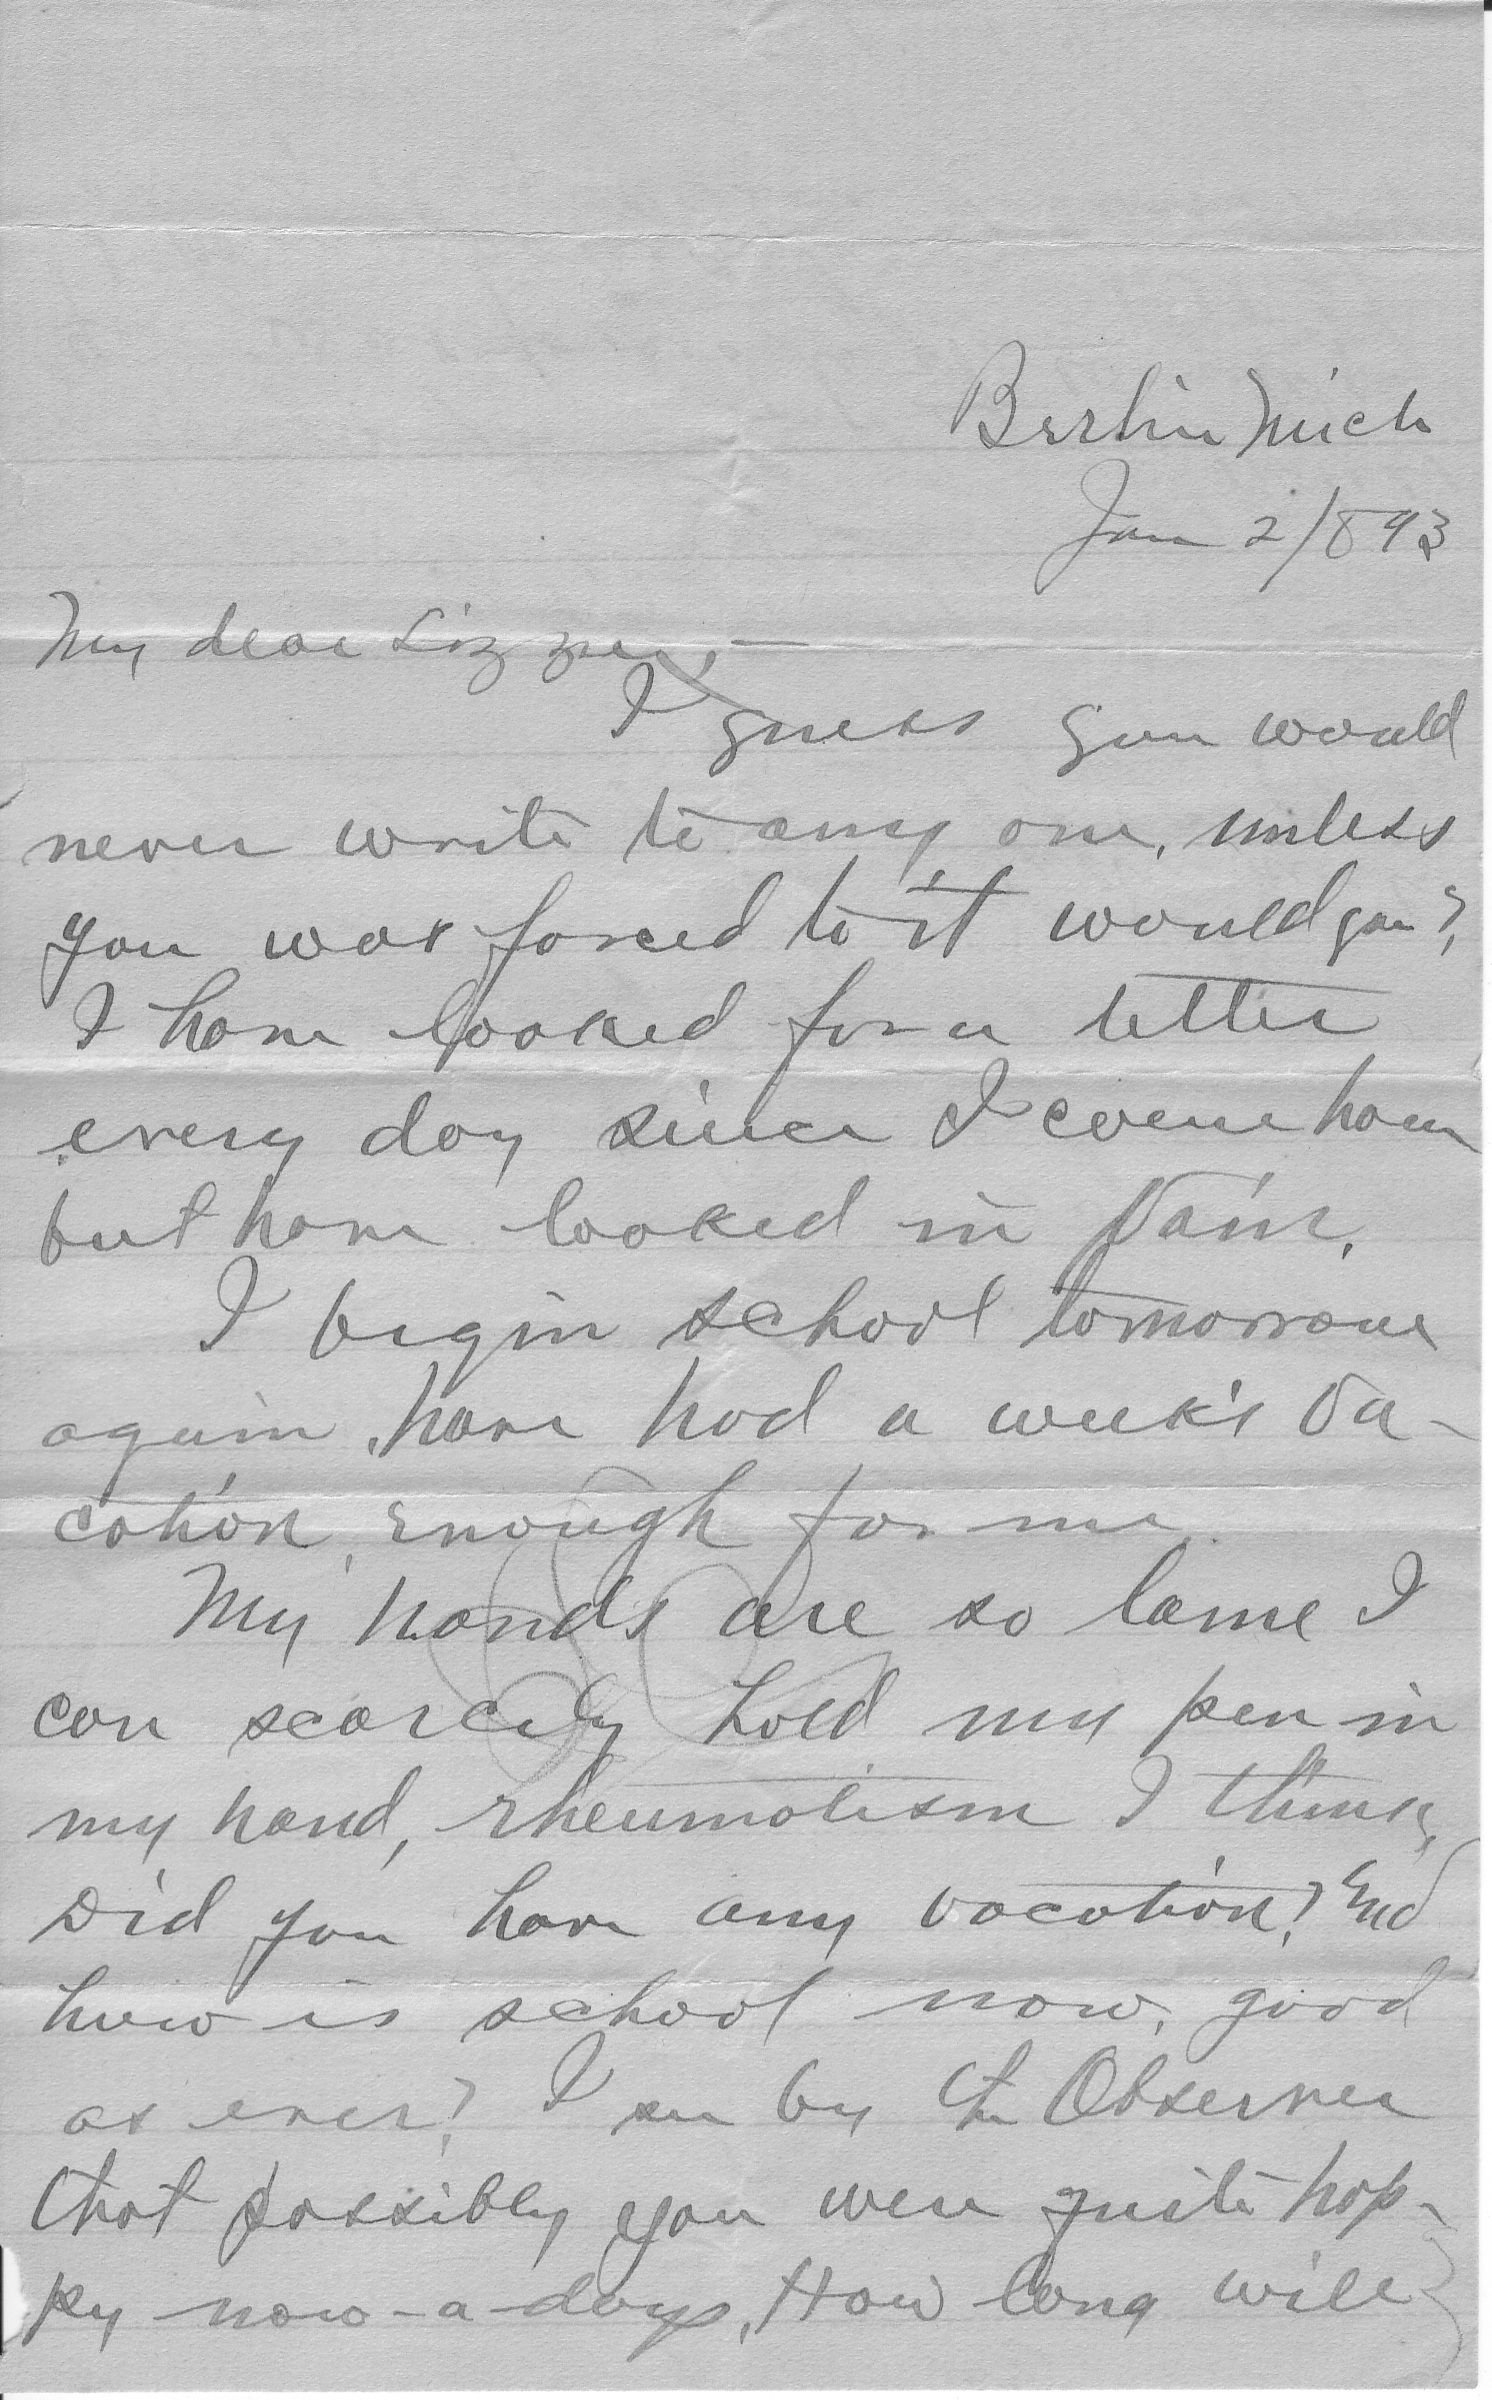 Berlin Mich
Jan 2/893
My dear Lizzie, —
I guess you would
never write to any one, unless
you was forced to it would you?
I have looked for a letter
every day since I came home
but have looked in vain.
I begin school tomorrow
again, have had a week's va-
cation, enough for me.
My hands are so lame I
can scarcely hold my pen in
my hand, rheumatism I think,
Did you have any vacation? And
how is school now, good
as ever? I see by the Observer
that possibly you were quite hap-
py now-a-days, How long will